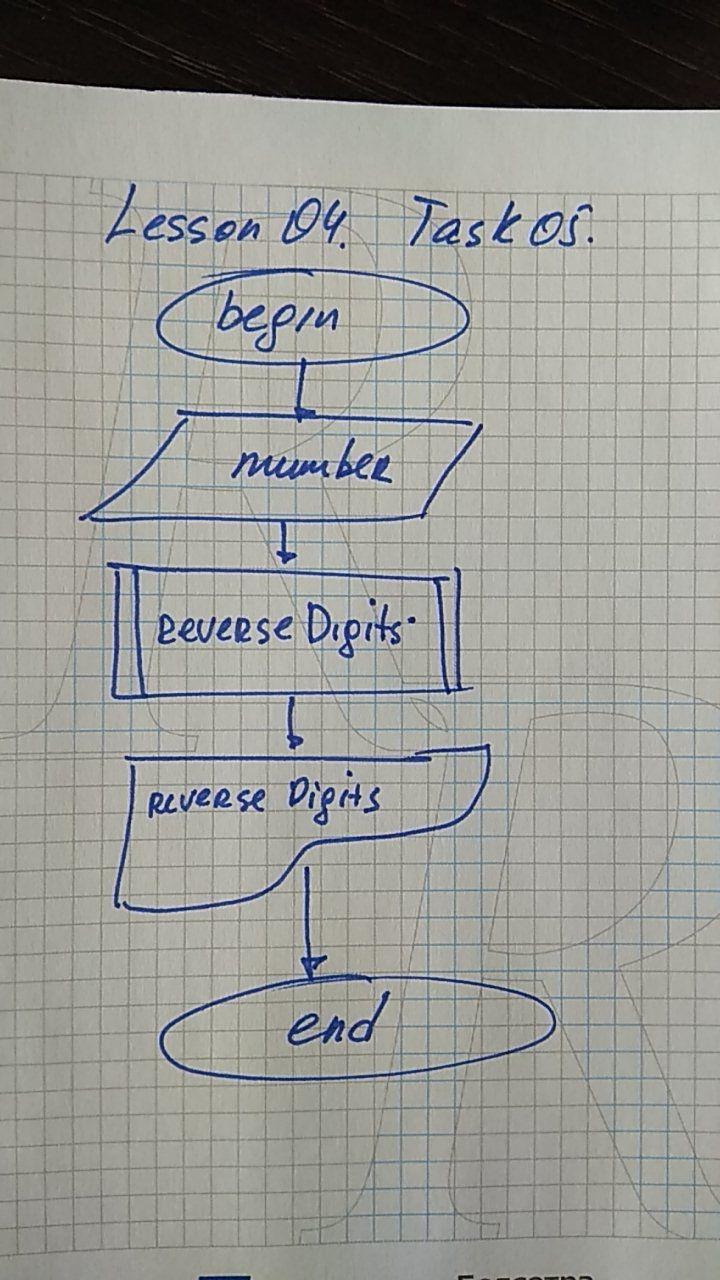 Lesson 04. Task 05.
begin
number
reverse Digits
reverse Digits
end